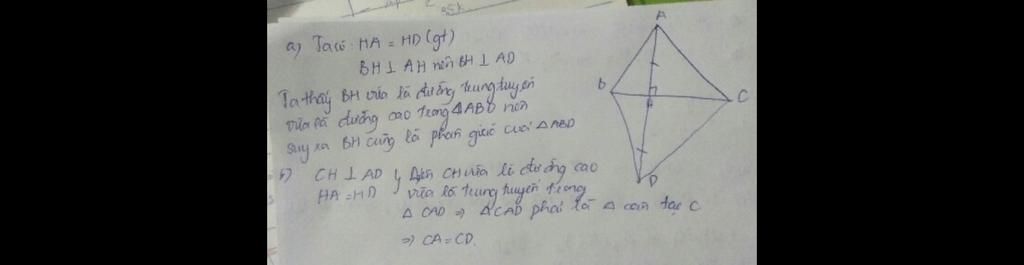 a) Ta có: HA = HD (gt)
BH ⊥ AH nên BH ⊥ AD
Ta thấy BH vừa là đường trung tuyến
vừa là đường cao trong ΔABD nên
suy ra BH cũng là phân giác của ΔABD
b) CH ⊥ AD } Nên CH vừa là đường cao
HA = HD vừa là trung tuyến trong
Δ CAD ⇒ ΔCAD phải là Δ cân tại C
⇒ CA = CD.
A
B
H
C
D